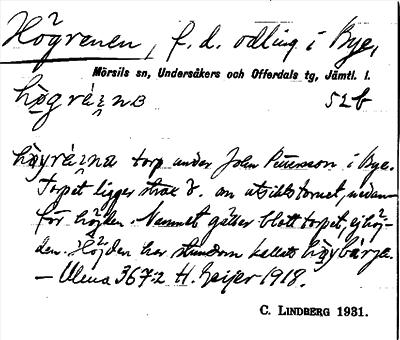 Högrenen, f. d. odling i Bye,
Mörsils sn, Undersåkers och Offerdals tg, Jämtl. l.
52b
torp under John Pettersson i Bye.
Torpet ligger strax ö. om utsiktstornet, nedan-
för höjden. Namnet gäller blott torpet, ej höj-
den. Höjden har stundom kallats
– Ulma 367:2 H. Geijer 1918.
C. LINDBERG 1931.